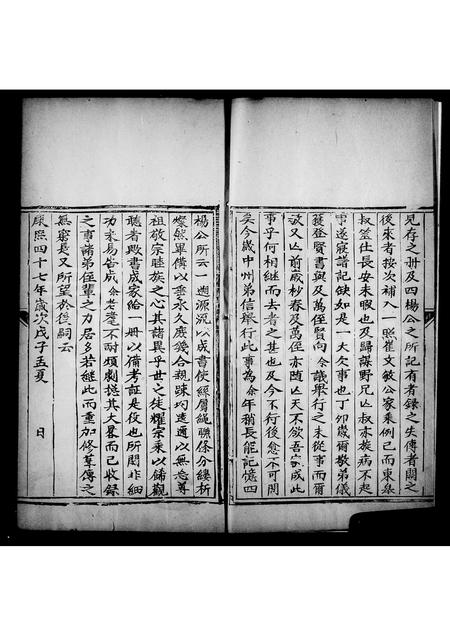 見存之冊及四楊公之所記有者錄之失傳者闕之
後來者按次補入一照崔文敏公家乘例已而東皋
叔筮仕長安未暇也及歸謀野兄亾叔亦族病不起
事遂寢譜記缺如是一大欠事也丁卯歲爾敬弟儀
蕢登賢書與及萬侄賢向余議舉行之未從事而爾
波又亾前歲杪春及萬侄亦随亾天不欲吾宗成此
事乎何相继而去者之甚也及今不行後愈不可問
矣今歲中州弟信舉行此事為余年稍長能記憶四
楊公所云一遡源流以成書使經層縄聯條分縷析
燦然畢備以垂永久庶幾合親疎均遠邇以無忘尊
祖敬宗睦族之心其諸異乎世之徒耀宗乘以餙觀
聽者歟書成家給一冊以備考証是役也所関非細
功未易告成余老耄不耐煩劇挻其大畧而已收録
之事諸弟侄輩之力居多若継此而重加修葺傳之
無窮長又所望於後嗣云
康熈四十七年歲次戊子孟夏 日